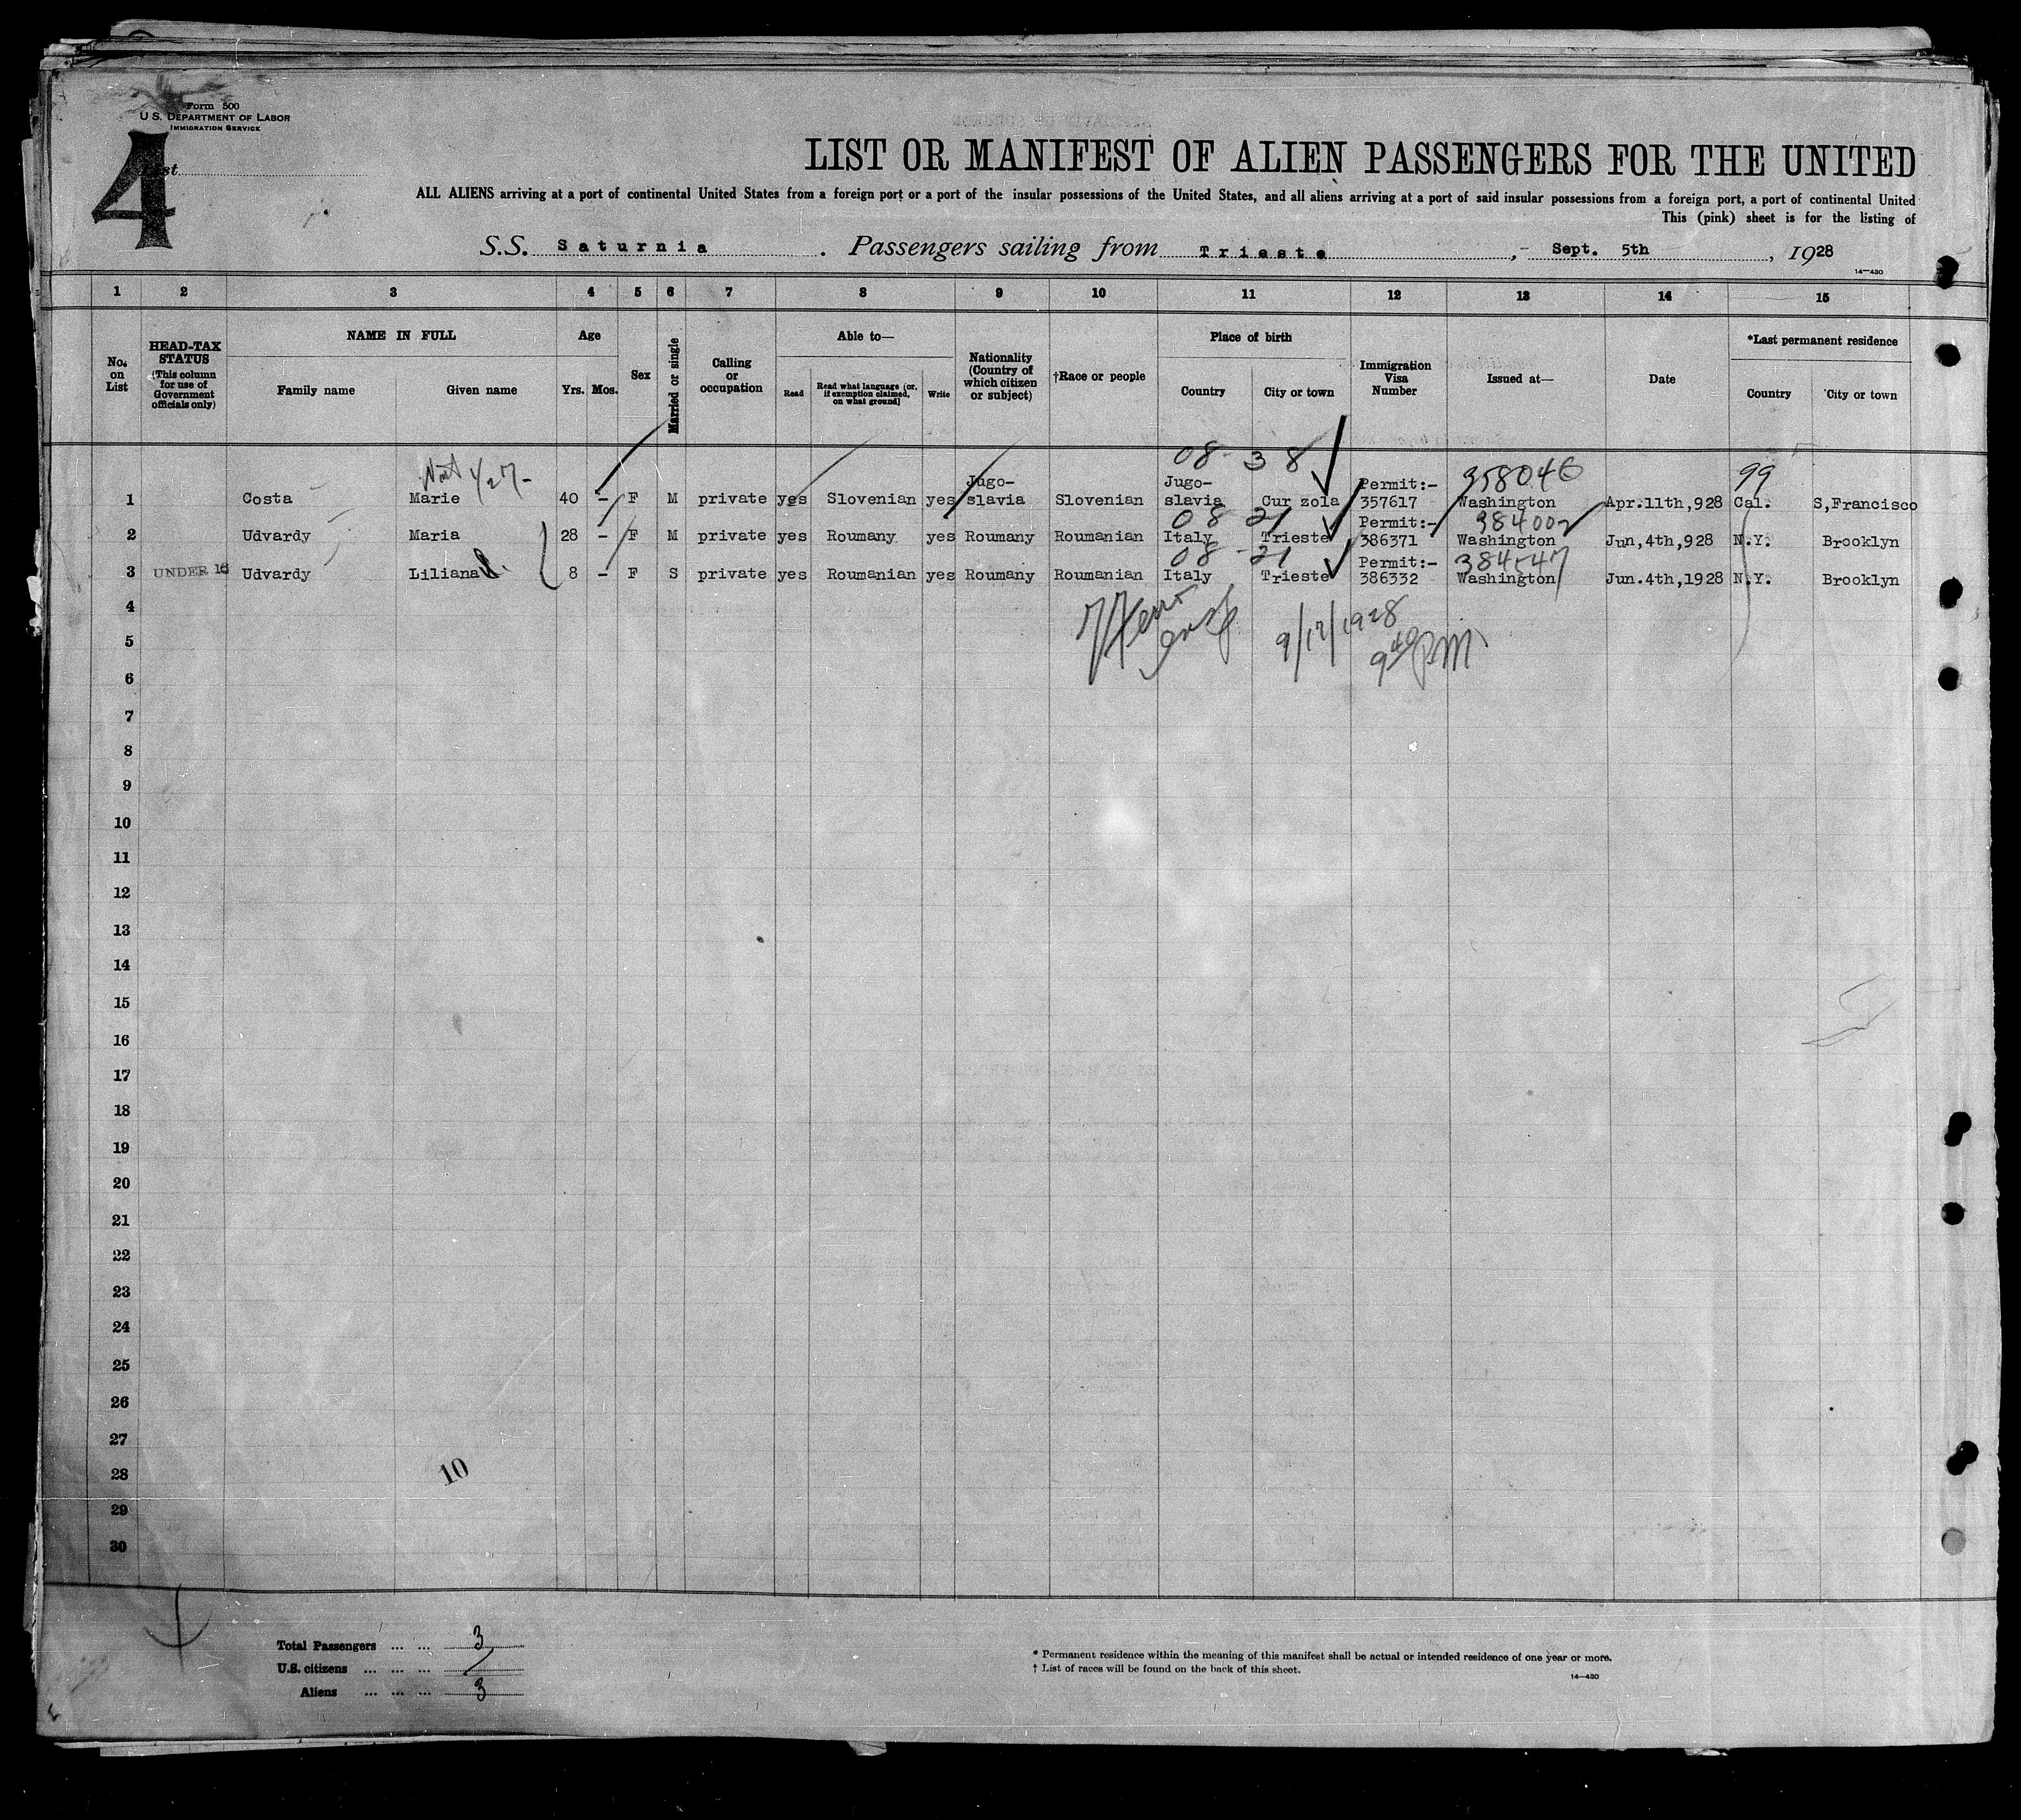 Form 500
U. S. DEPARTMENT OF LABOR
IMMIGRATION SERVICE
4
List
LIST OR MANIFEST OF ALIEN PASSENGERS FOR THE UNITED
ALL ALIENS arriving at a port of continental United States from a foreign port or a port of the insular possessions of the United States, and all aliens arriving at a port of said insular possessions from a foreign port, a port of continental United
This (pink) sheet is for the listing of
S.S. Saturnia . Passengers sailing from Trieste , - Sept. 5th , 1928
14—430
1 2 3 4 5 6 7 8 9 10 11 12 13 14 15
No. on List
HEAD-TAX STATUS (This column for use of Government officials only)
NAME IN FULL
Family name Given name
Age
Yrs. Mos.
Sex
Married or single
Calling or occupation
Able to—
Read Read what language [or, if exemption claimed, on what ground] Write
Nationality (Country of which citizen or subject)
†Race or people
Place of birth
Country City or town
Immigration Visa Number
Issued at—
Date
*Last permanent residence
Country City or town
08 - 38 358046 99
Jugo- Jugo- Permit:-
1 Costa Marie 40 - F M private yes Slovenian yes slavia Slovenian slavia Cur zola 357617 Washington Apr.11th,928 Cal. S,Francisco
08 21 Permit:-
2 Udvardy Maria 28 - F M private yes Roumany yes Roumany Roumanian Italy Trieste 386371 Washington Jun,4th,928 N.Y. Brooklyn
08 - 21 Permit:- 384547
3 UNDER 16 Udvardy Liliana 8 - F S private yes Roumanian yes Roumany Roumanian Italy Trieste 386332 Washington Jun.4th,1928 N.Y. Brooklyn
4
9/17/1928
5
9 40 P.M.
6
7
8
9
10
11
12
13
14
15
16
17
18
19
20
21
22
23
24
25
26
27
28
10
29
30
Total Passengers ... ... 3
U.S. citizens ... ... ... /
Aliens ... ... ... 3
* Permanent residence within the meaning of this manifest shall be actual or intended residence of one year or more.
† List of races will be found on the back of this sheet.
14—430